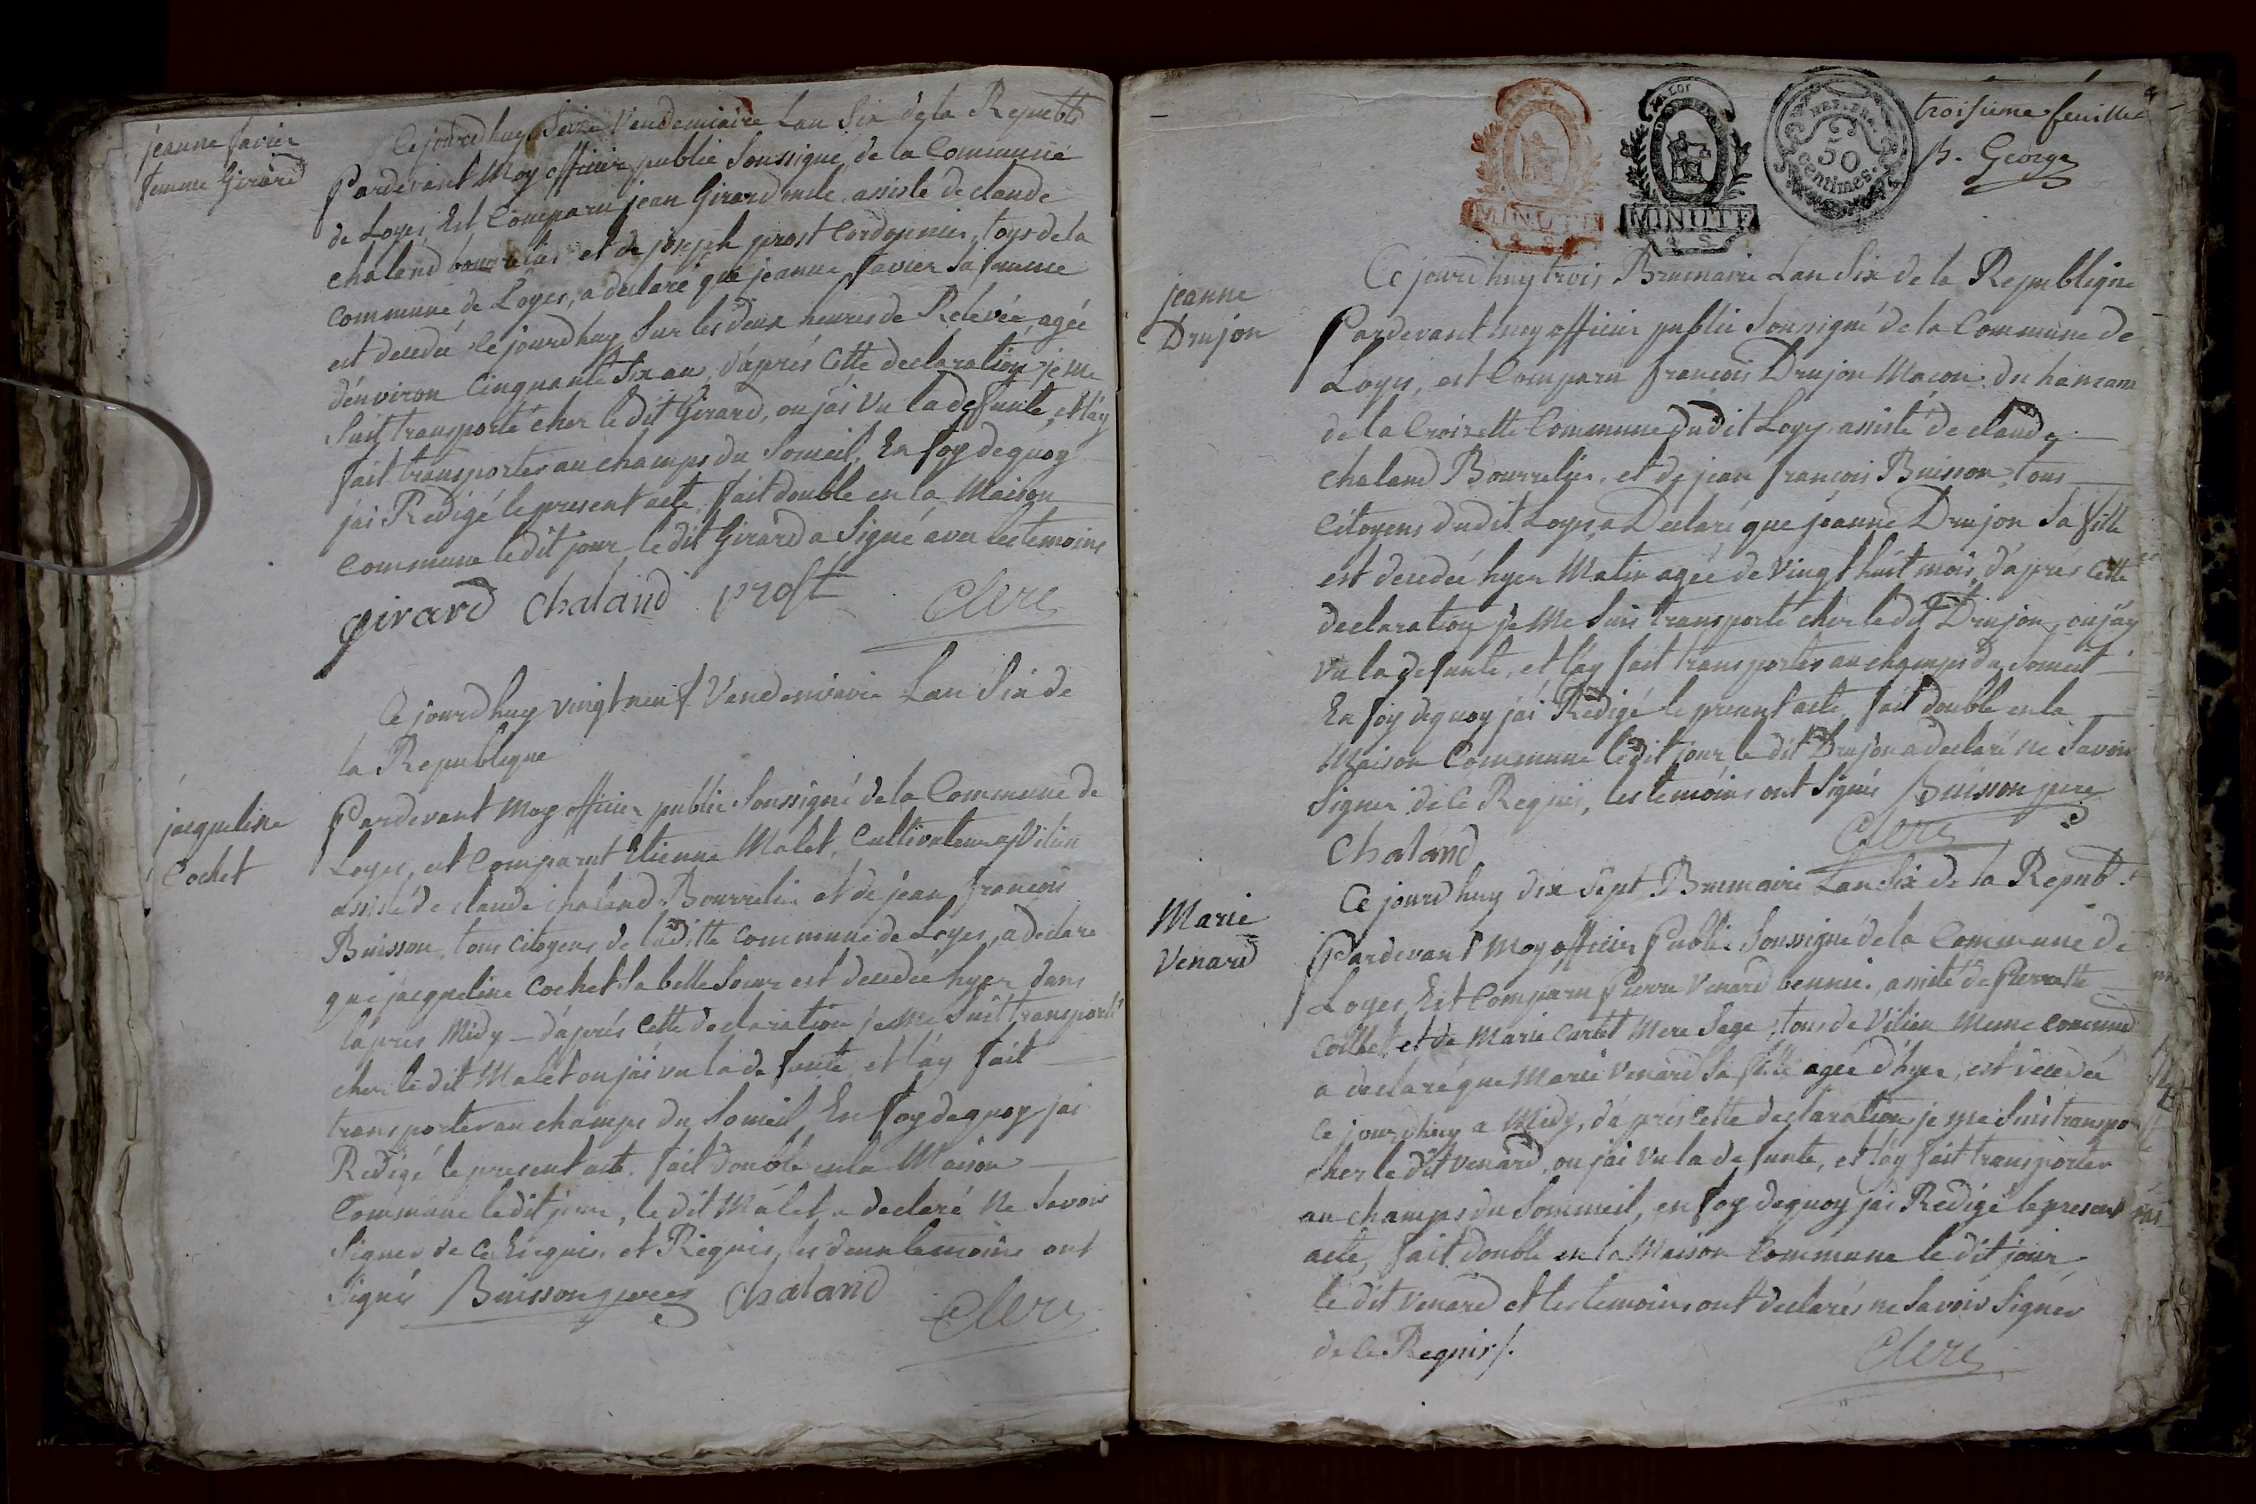 jeanne favier
femme Girard
Ce jourdhuy Seize Vendemiaire Lan Six de la Republ
Pardevant Moy officier public Soussigné de la Commune
de Loyes, Est Comparu jean Girard assisté de claude
chaland bourrelier et de joseph prost Cordonnier, tous de la
commune de Loyes, a declaré que jeanne favier Sa femme
est decedée Ce jourdhuy Sur les deux heures de Relevée, agée
d'environ Cinquante Six an, d'aprés Cette declaration je me
Suis transporté cher le dit Girard, ou j'ai vu la defunte, et l'ay
fait transporter au champs du Someil, En foy de quoy
jai Redigé le present acte, fait double en la Maison
Commune le dit jour, le dit Girard a Signé avec les temoins
girard Chaland prost Clerc
Ce jourdhuy vingt neuf Vendemiaire Lan Six de
la Republique
jacqueline
Cochet
Pardevant Moy officier public Soussigné de la Commune de
Loyes, est Comparut Etienne Malet, Cultivateur a Vilieu
assisté de claude chaland Bourrelier et de jean françois
Buisson, tous citoyens de laditte commune de Loyes, a declaré
que jacqueline Cochet Sa belle Soeur est decedée hyer dans
l'apres Midy - d'aprés Cette declaration je me Suis transporté
cher le dit Malet ou j'ai vu la defunte, et l'ay fait
transporter au champs du Someil, En foy de quoy jai
Redigé le present acte. fait double en la Maison
Commune le dit jour, le dit Malet a declaré Ne Savoir
Signer de Ce Enquis et Requis, les deux temoins ont
Signés Buisson pere Chaland Clerc
MINUTE
MINUTE
50
Centimes
troisieme feuillet
B. George
jeanne
Drujon
Ce jourdhuy trois Brumaire Lan Six de la Republique
Pardevant moy officier public Soussigné de la Commune de
Loyes, est Comparu françois Drujon Macon du hameau
de la Croizette Commune dudit Loyes assisté de claude
chaland Bourrelier, et de jean françois Buisson, tous
Citoyens dudit Loyes, a Declaré que jeanne Drujon Sa fille
est decedée hyer Matin agée de vingt huit mois, d'aprés Cette
declaration je Me Suis transporté cher le dit Drujon, ou j'ay
vu la defunte, et l'ay fait transporter au champs du Someil
En foy de quoy j'ai Redigé le present acte fait double en la
Maison Commune ledit jour le dit Drujon a declaré ne Savoir
Signer de Ce Requis, les temoins ont Signés Buisson pere
Chaland Clerc
Marie
Venard
Ce jourdhuy dix Sept Brumaire Lan Six de la Republ.
Pardevant Moy officier Public Soussigné de la Commune de
Loyes, Est Comparu Pierre Venard bennier, assisté de Pierrette
Collet et de Marie Curtet Mere Sage, tous de Vilieu Meme Commune
a declaré que Marie Venard Sa fille agée d'hyer, est decedée
Ce jourdhuy a Midy, d'aprés Cette declaration je me Suis transpo
cher le dit Venard, ou j'ai vu la defunte, et l'ay fait transporter
au champs du Sommeil, en foy de quoy j'ai Redigé le present
acte, fait double en la Maison Commune le dit jour
le dit Venard et les temoins ont declarés ne Savoir Signer
de Ce Requis/.
Clerc